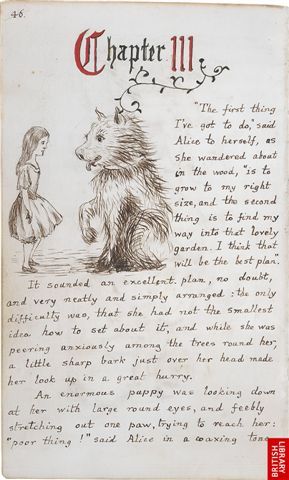 46.
Chapter III
"The first thing
I've got to do," said
Alice to herself, as
she wandered about
in the wood, "is to
grow to my right
size, and the second
thing is to find my
way into that lovely
garden. I think that
will be the best plan."
It sounded an excellent plan, no doubt,
and very neatly and simply arranged: the only
difficulty was, that she had not the smallest
idea how to set about it, and while she was
peering anxiously among the trees round her,
a little sharp bark just over her head made
her look up in a great hurry.
An enormous puppy was looking down
at her with large round eyes, and feebly
stretching out one paw, trying to reach her:
"poor thing!" said Alice in a coaxing tone
BRITISH
LIBRARY